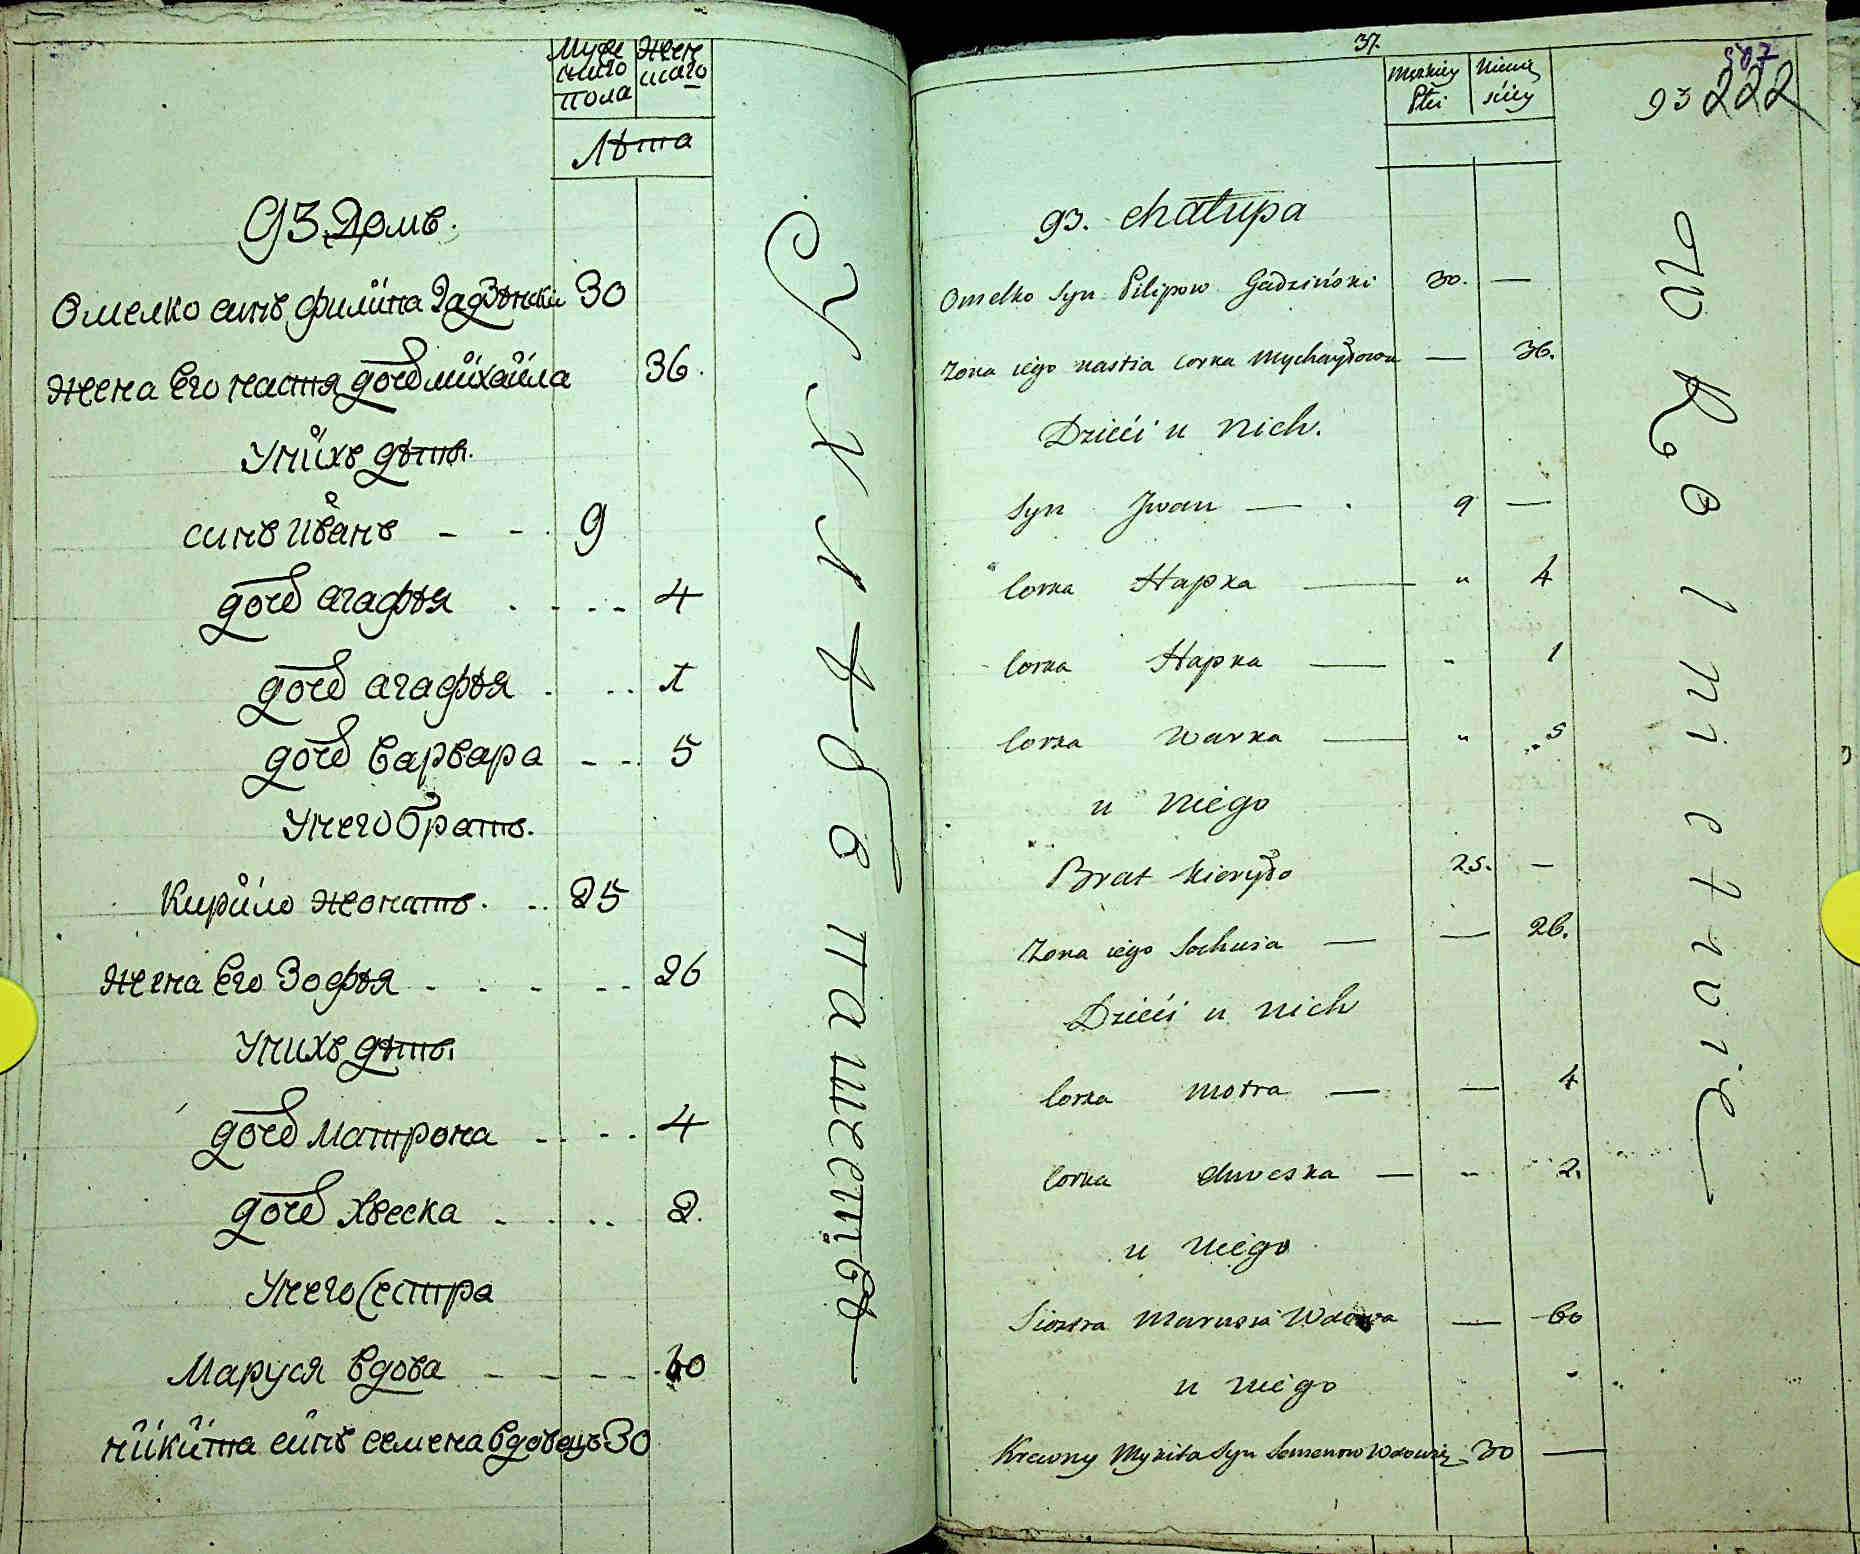 Муже Жен
скаго скаго
пола
Лѣта
93 Домъ.
Омелко синъ филипа Гадзѣнски 30
жена Его настя дочъ михайла 36.
Унихъ дѣти.
синъ иванъ - - 9
дочъ агафѣя . - - - 4
дочъ агафѣя . - . . 1
дочъ варвара - - . 5
Унего братъ.
Кирило жонатъ. . . 25
жена Его Зофѣя - . . - - - 26
Унихъ дѣти.
дочъ Матрона - - - . 4
дочъ Хвеска - . . . 2.
Унего Сестра
Маруся вдова - - - - 60
никита синъ семена вдовецъ 30
у хлѣбѣ пашества
37.
Męzkiey Niewie
Płci sciey
507
93 222
93. chałupa
Omelko Syn Pilipow Gadziński 30. —
Zona iego nastia corka Mychayłowa — 36.
Dzieci u nich.
Syn Jwan — . 9 —
Corka Hapka — " 4
Corka Hapka — " 1
Corka Warka — " 5
u niego
Brat Kieryło 25. —
Zona iego Sochwia — — 26.
Dzieci u nich
Corka Motra — — 4
Corka chweska — " 2.
u niego
Siostra Marusia Wdowa — 60
u niego "
Krewny Mykita Syn Semenow Wdowiec 30 —
w Rolnictwie